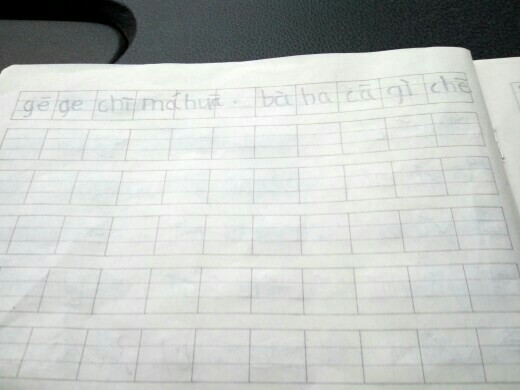 gē ge chī má huā . bà ba cā qì chē